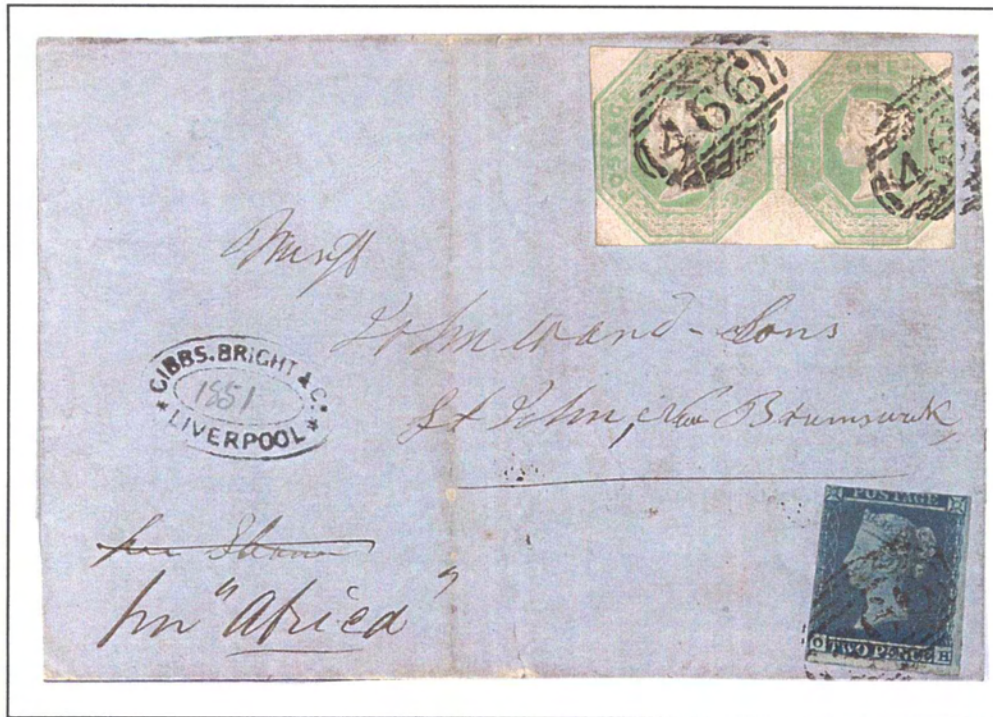 466
466
Messrs
John Ward & Sons
St John, New Brunswick,
GIBBS. BRIGHT & Co.
1851
* LIVERPOOL *
per Steamer
per "Africa"
POSTAGE
O TWO PENCE H